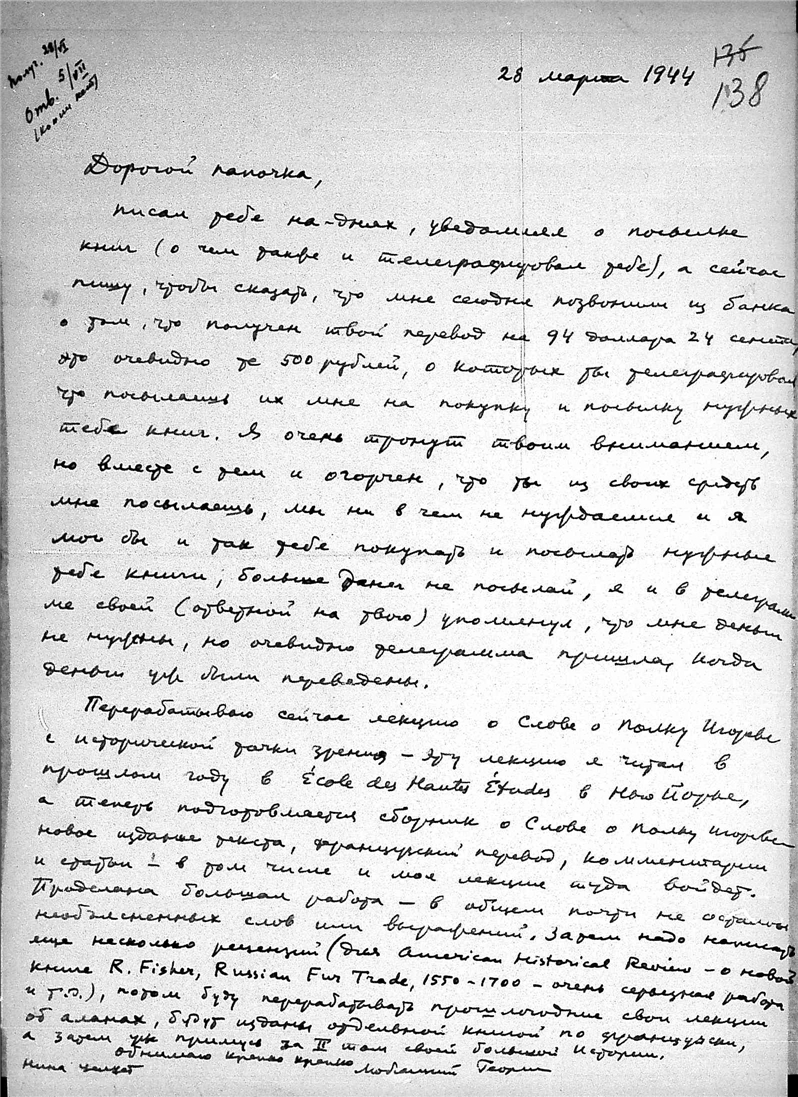 Получ. 28/VI
Отв. 5/VII
136
28 марта 1944
138
Дорогой папочка,
писал тебе на-днях, уведомляя о посылке
книг (о чем также и телеграфировал тебе), а сейчас
пишу, чтобы сказать, что мне сегодня позвонили из банка
о том, что получен твой перевод на 94 доллара 24 сента,
это очевидно те 500 рублей, о которых ты телеграфировал
что посылаешь их мне на покупку и посылку нужных
тебе книг. Я очень тронут твоим вниманием,
но вместе с тем и огорчен, что ты из своих средств
мне посылаешь, мы ни в чем не нуждаемся и я
мог бы и так тебе покупать и посылать нужные
тебе книги; больше денег не посылай, я и в телеграм
ме своей (ответной на твою) упомянул, что мне деньги
не нужны, но очевидно телеграмма пришла, когда
деньги уже были переведены.
Перерабатываю сейчас лекцию о Слове о Полку Игореве
с исторической точки зрения – эту лекцию я читал в
прошлом году в École des Hautes Études в Нью Йорке,
а теперь подготовляется сборник о Слове о Полку Игореве
новое издание текста, французский перевод, комментарии
и статьи – в том числе и моя лекция туда войдет.
Проделана большая работа – в общем почти не осталось
необъясненных слов или выражений. Затем надо написать
еще несколько рецензий (для American Historical Review – о новой
книге R. Fisher, Russian Fur Trade, 1550-1700 – очень серьезная работа
и т.д.), потом буду перерабатывать прошлогодние свои лекции
об аланах, будут изданы отдельной книгой по французски,
а затем уж примусь за II том своей большой Истории.
Обнимаю крепко крепко
Нина целует
Любящий Георгий